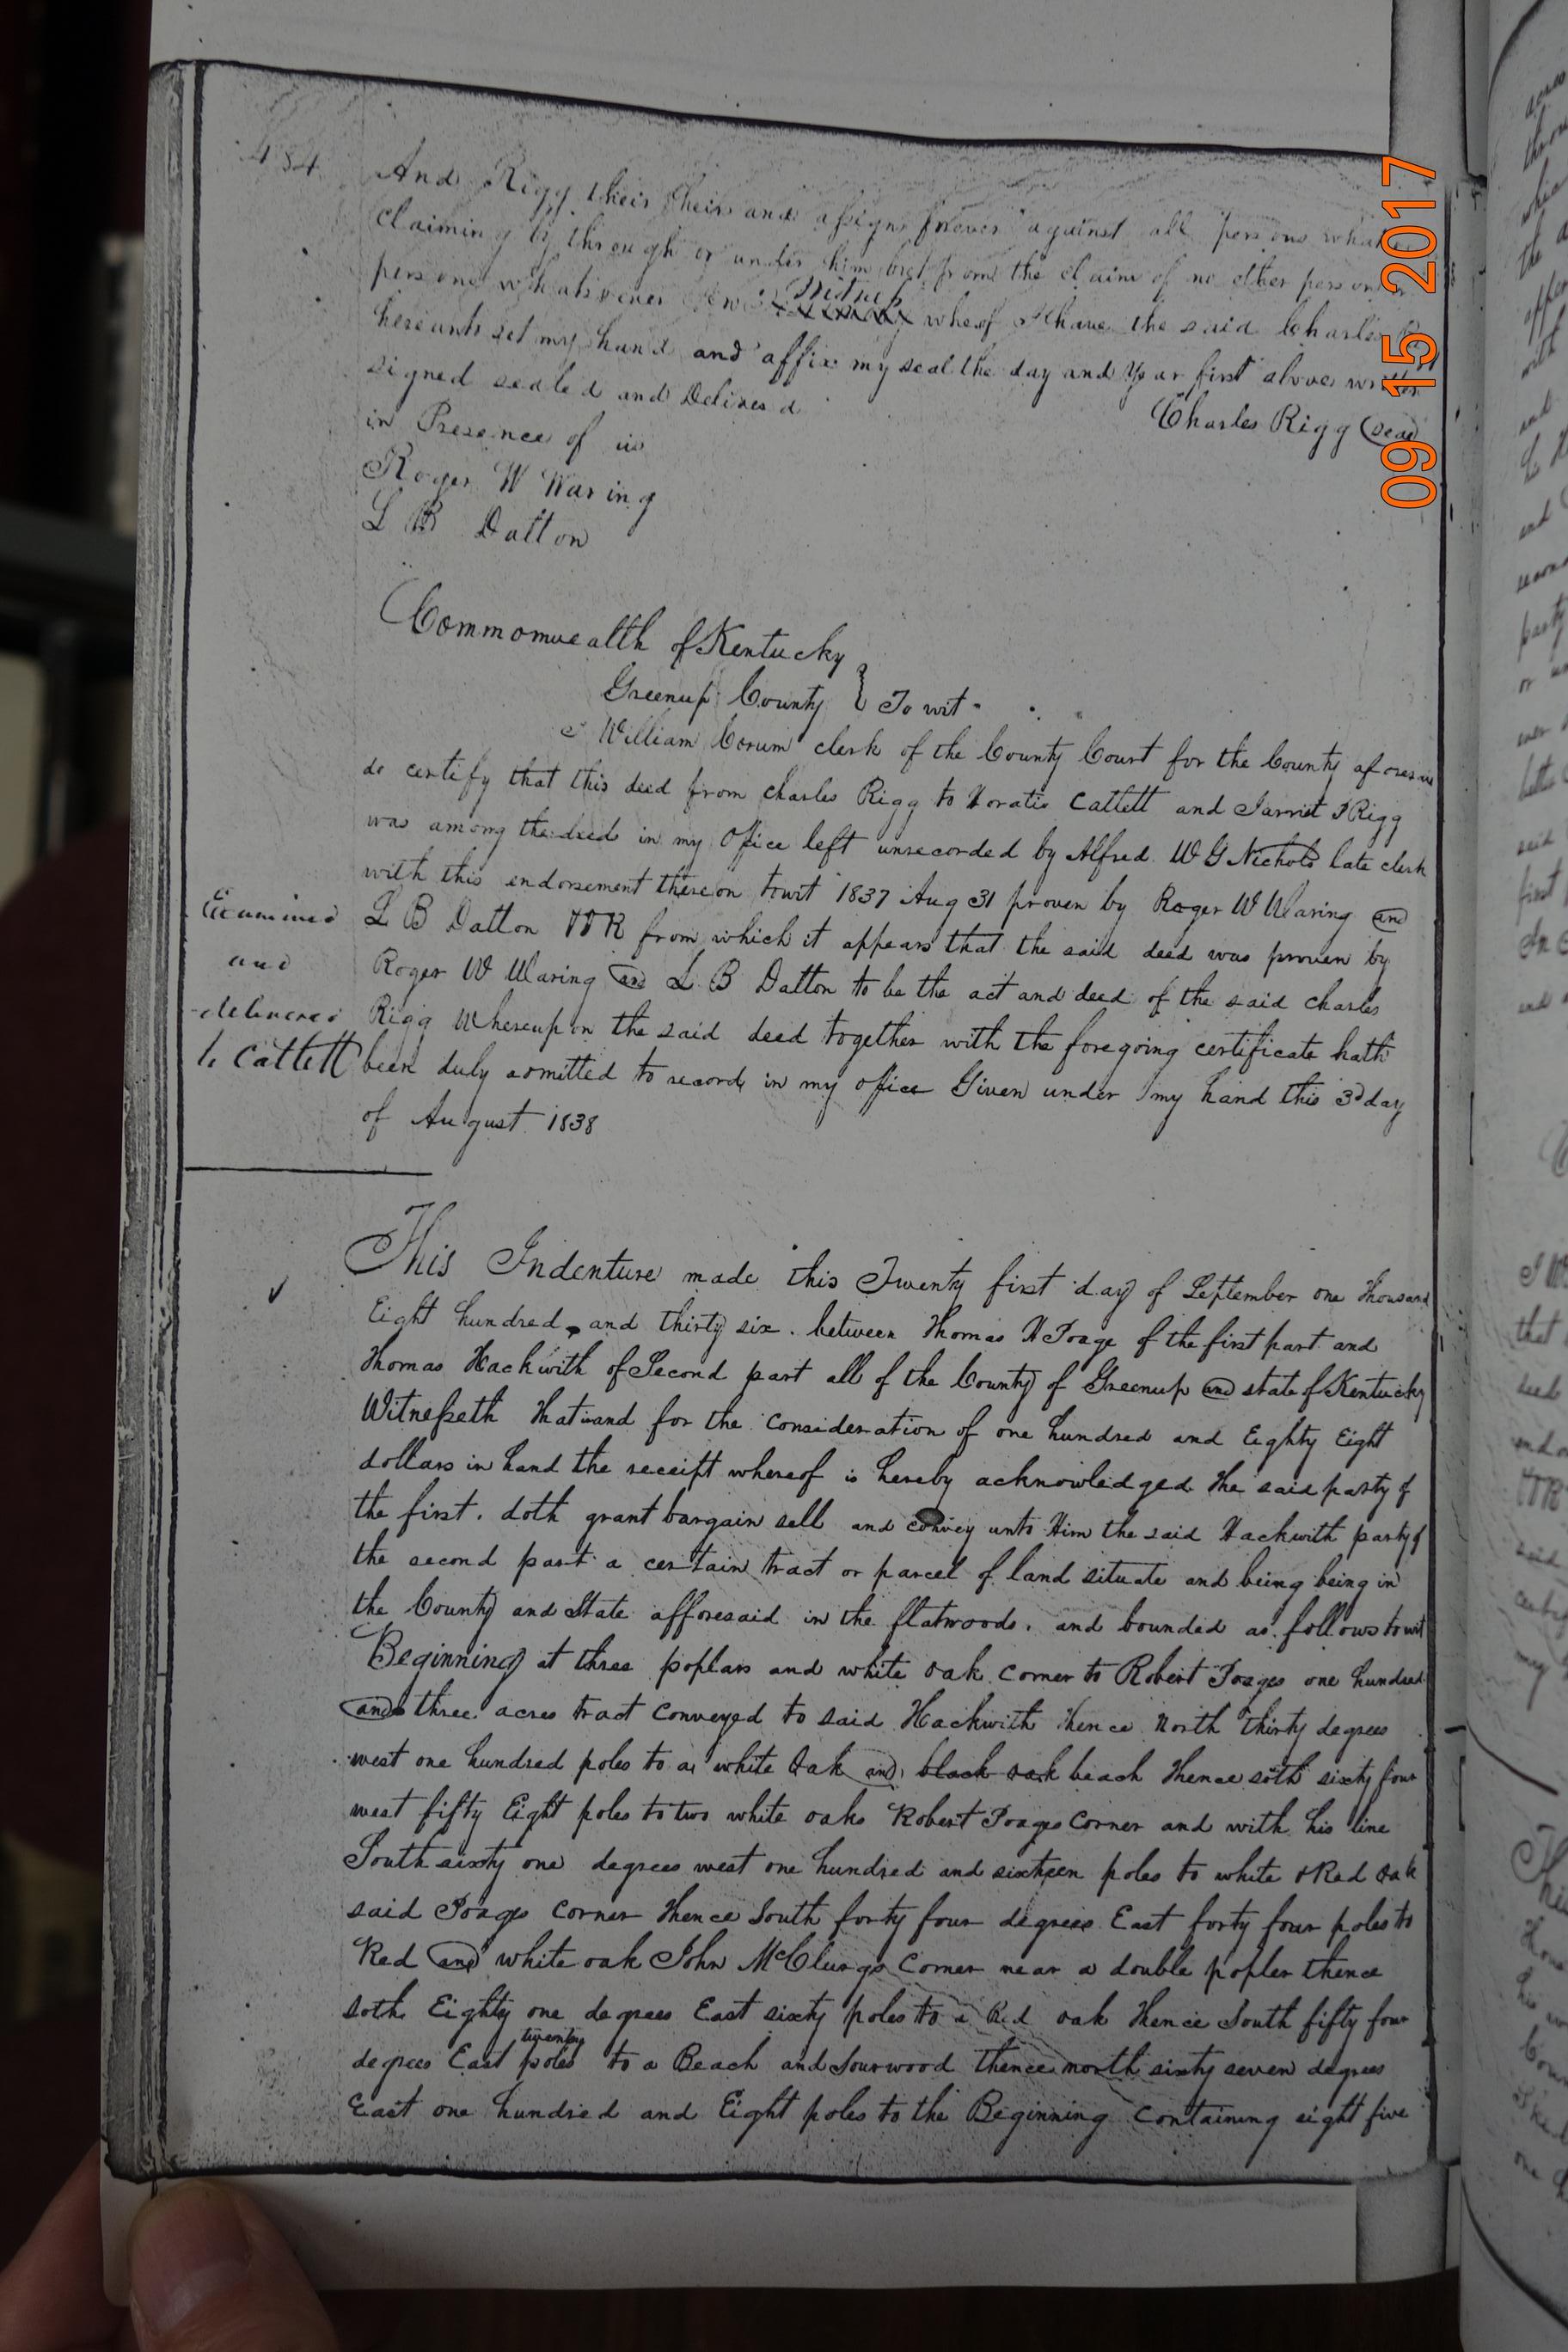 484
And Rigg their heirs and assigns forever against all persons
claiming by through or under him but from the claim of no other person or
persons whatsoever In Witness wheof I have the said Charles
hereunto set my hand and affix my seal the day and Year first above written
signed sealed and Delivered
Charles Rigg (seal)
in Presence of us
Roger W Waring
L B Dalton
Commomwealth of Kentucky
Greenup County } To wit
I William Corum clerk of the County Court for the County aforesaid
do certify that this deed from Charles Rigg to Horatio Catlett and Jarret Rigg
was among the deed in my Office left unrecorded by Alfred W G Nichols late clerk
with this endorsement thereon towit 1837 Aug 31 proven by Roger W Waring and
Examined L B Dalton from which it appears that the said deed was proven by
and Roger W Waring and L B Dalton to be the act and deed of the said Charles
delivered Rigg Whereupon the said deed together with the foregoing certificate hath
to Catlett been duly admitted to record in my office Given under my hand this 3d day
of August 1838
This Indenture made this Twenty first day of September one thousand
Eight hundred and thirty six. between Thomas H Poage of the first part and
Thomas Hackwith of Second part all of the County of Greenup and state of Kentucky
Witnesseth that and for the consideration of one hundred and Eighty Eight
dollars in hand the receipt whereof is hereby acknowledged the said party of
the first. doth grant bargain sell and convey unto Him the said Hackwith party of
the second part a certain tract or parcel of land situate and being being in
the County and State afforesaid in the flatwoods. and bounded as follows to wit
Beginning at three poplars and white oak corner to Robert Poages one hundred
and three acres tract conveyed to said Hackwith thence North thirty degrees
west one hundred poles to a white Oak and black oak beach thence soth sixty four
west fifty Eight poles to two white oaks Robert Poages Corner and with his line
South sixty one degrees west one hundred and sixteen poles to white & Red Oak
said Poags Corner thence South forty four degrees East forty four poles to
Red and white oak John McClurgs Corner near a double popler thence
soth Eighty one degrees East sixty poles to a Red oak thence South fifty four
degrees East twenty poles to a Beach and Sourwood thence north sixty seven degrees
East one hundred and Eight poles to the Beginning containing eight five
09 15 2017